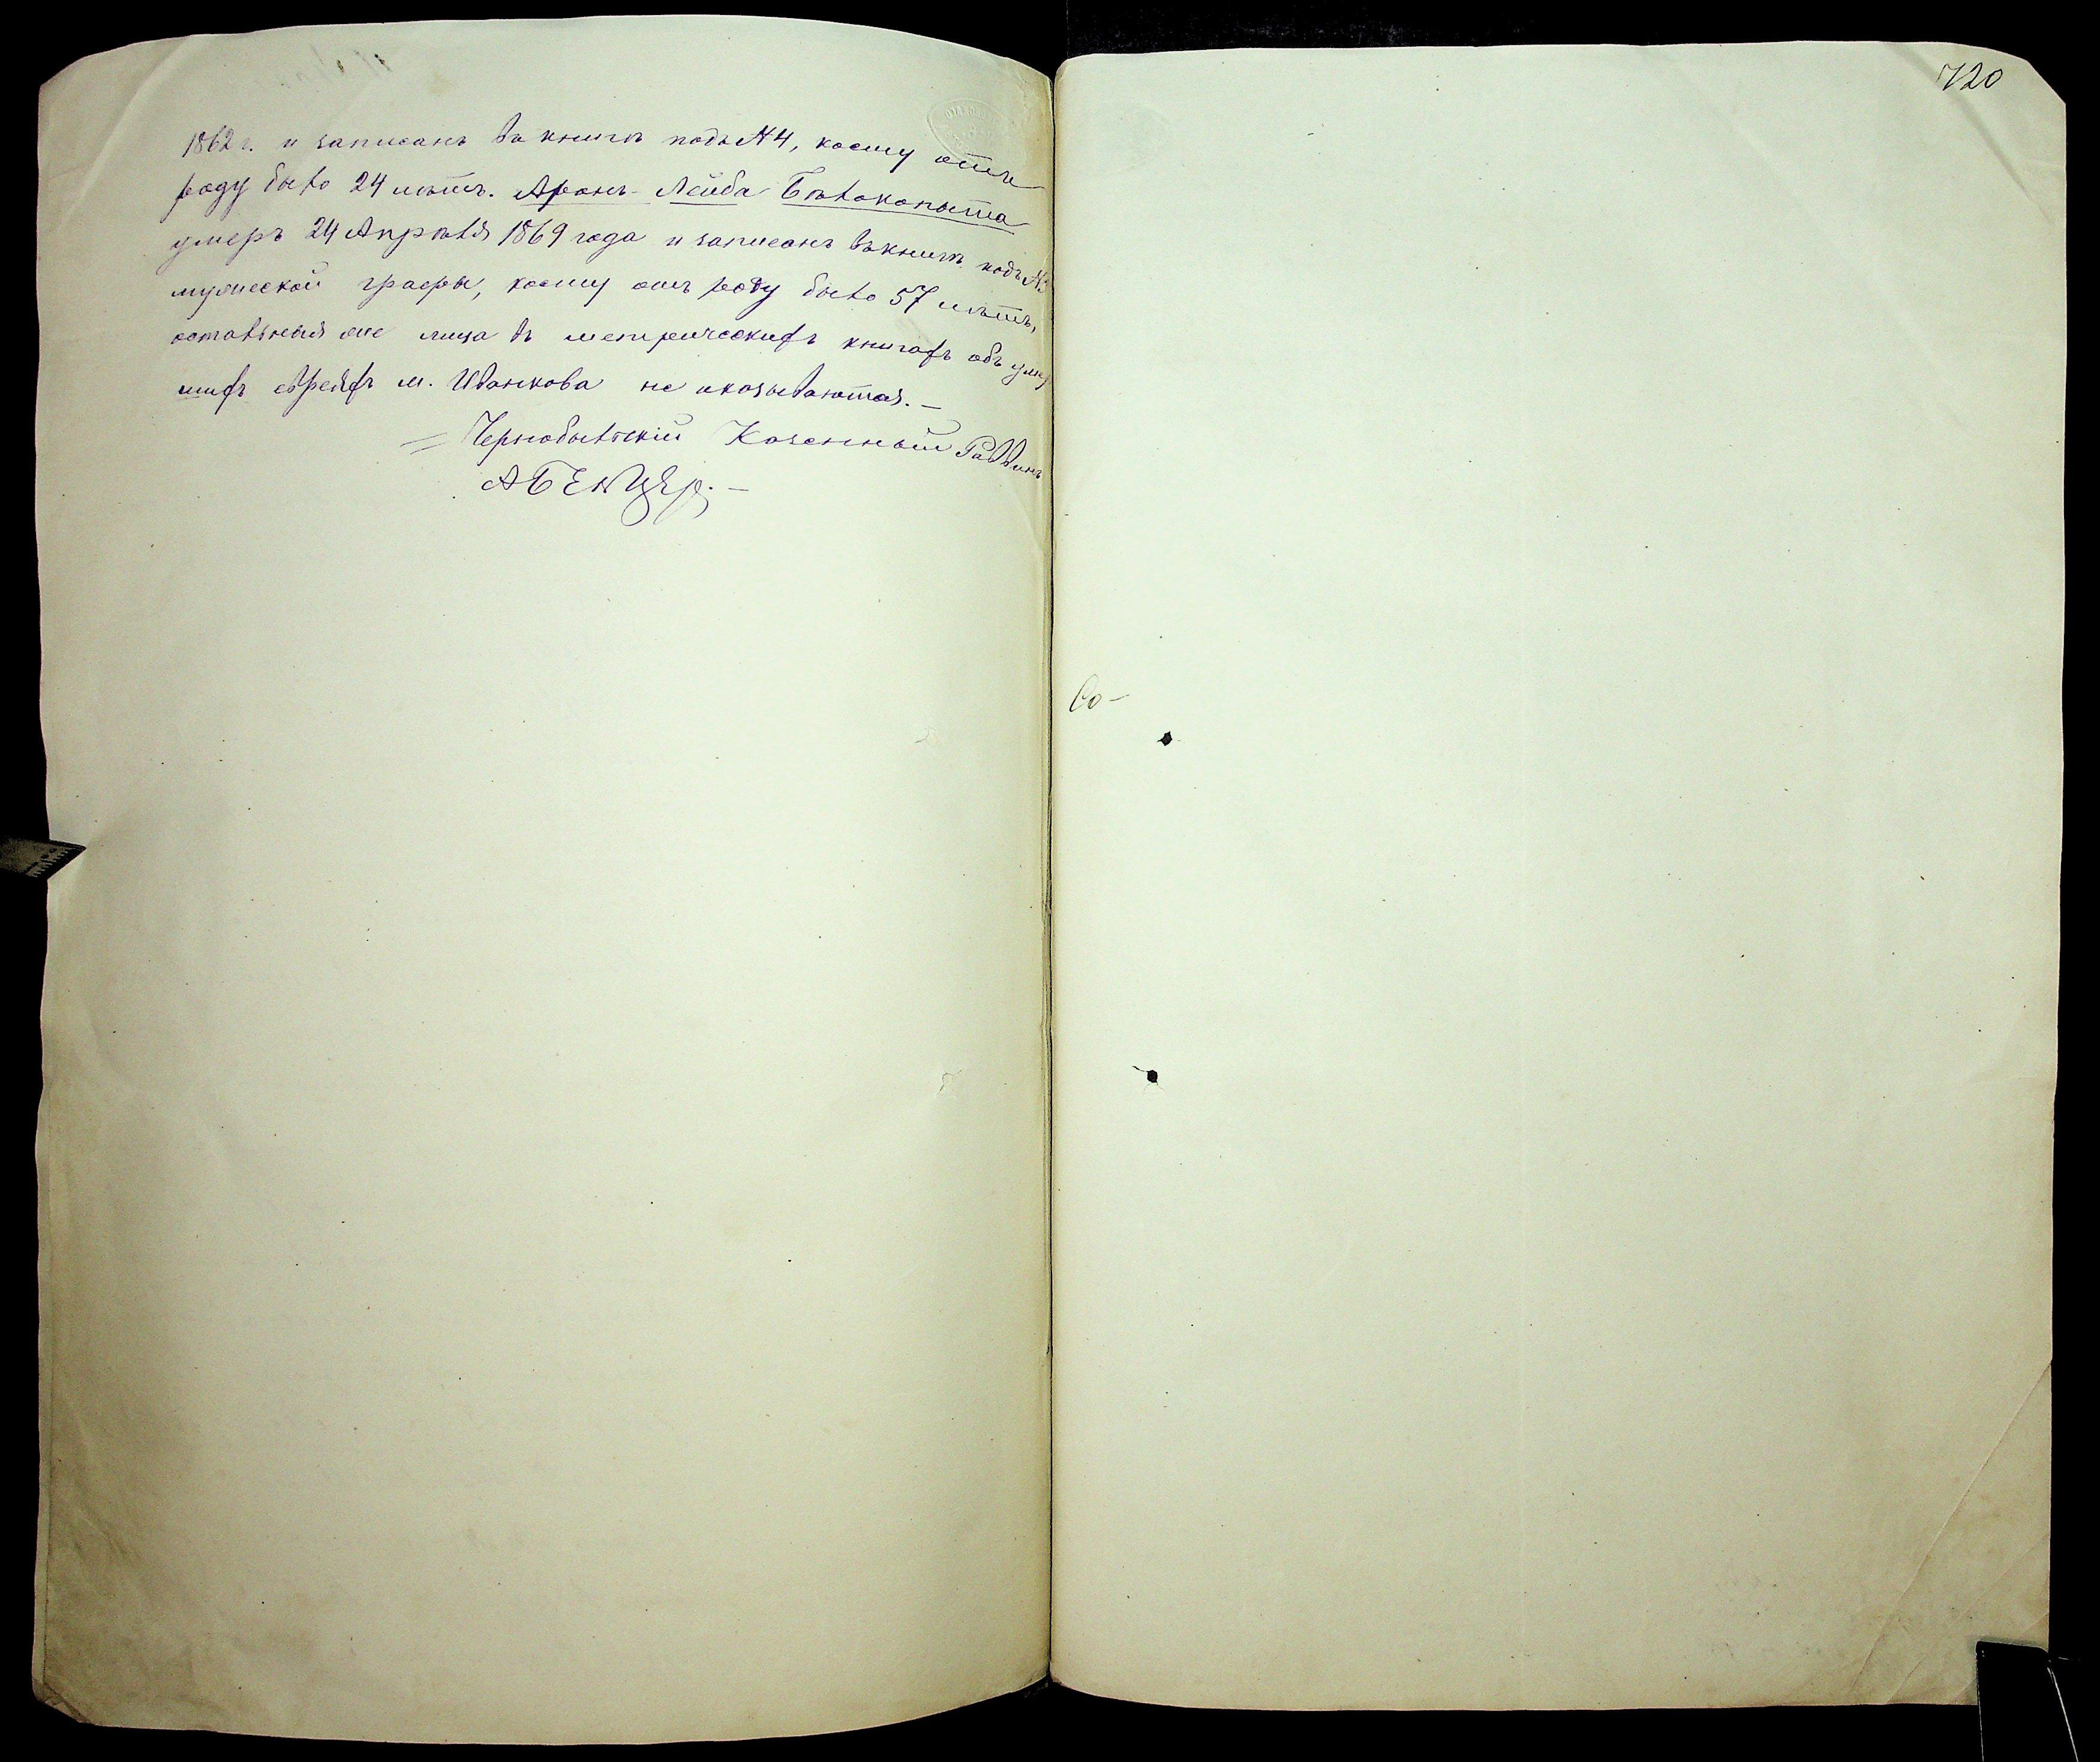 720
1862 г. и записанъ въ книгѣ подъ №4, коему отъ
роду было 24 лѣтъ. Аронъ-Лейба Бѣлокопыта
умеръ 24 Апрѣля 1869 года и записанъ въ книгѣ подъ №3
мужеской графы, коему отъ роду было 57 лѣтъ,
остальныя же лица въ метрическихъ книгахъ объ умер
шихъ евреяхъ м. Иванкова не оказываются. —
Чернобыльскій Казенный Раввинъ
Со-